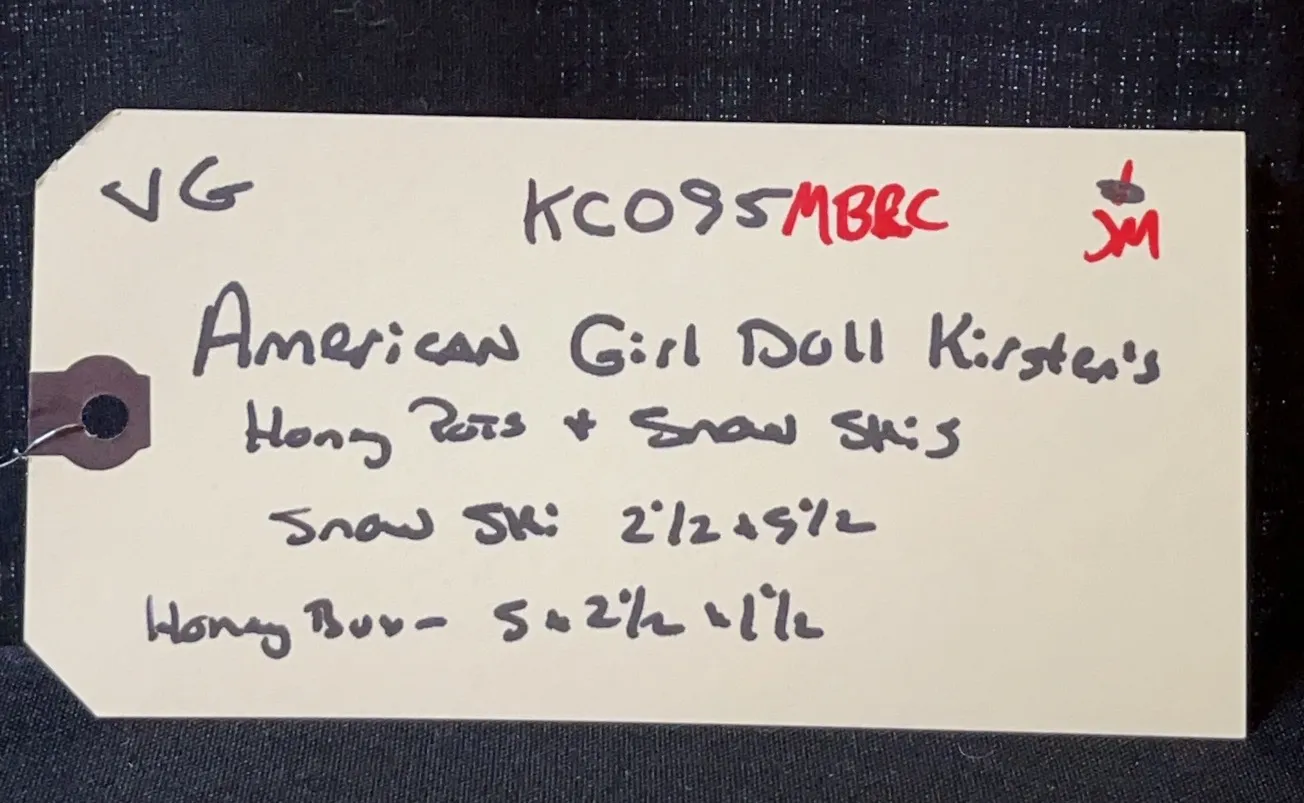 VG KC095MBRC JM
American Girl Doll Kirsten's
Honey Pots + Snow Skis
Snow Ski 2 1/2 x 5 1/2
Honey Box - 5 x 2 1/2 x 1 1/2